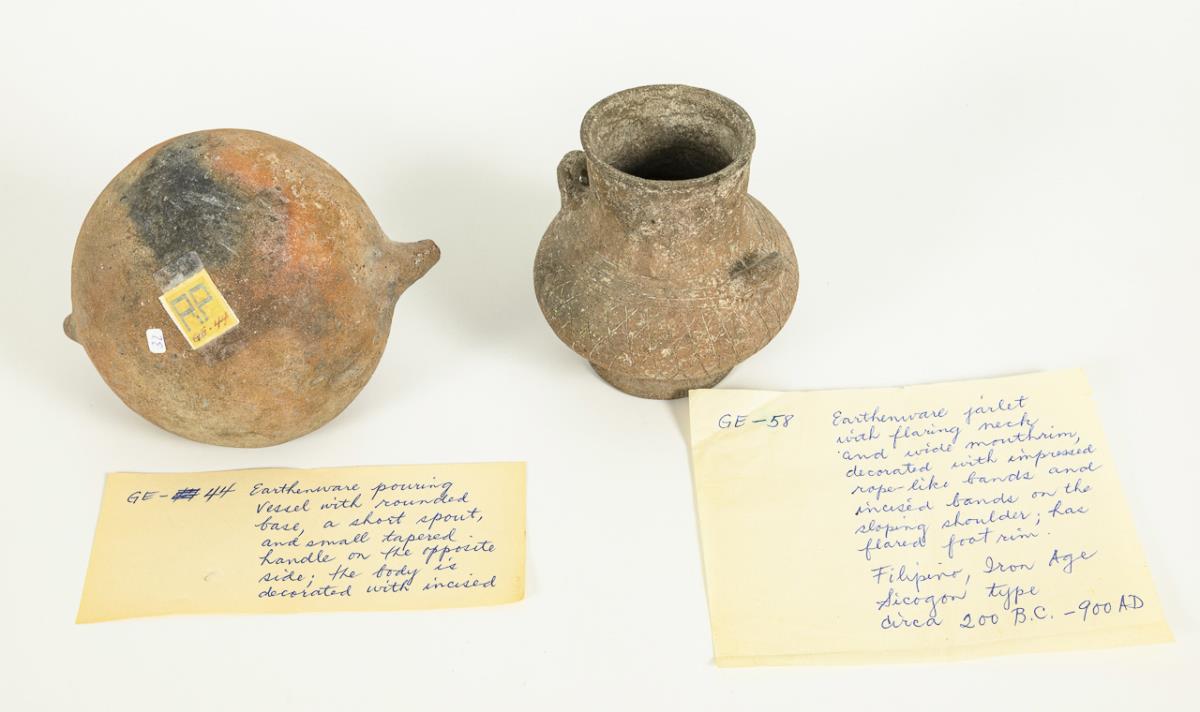 RP
GE-44
32
GE-44 Earthenware pouring
vessel with rounded
base, a short spout,
and small tapered
handle on the opposite
side; the body is
decorated with incised
GE-58 Earthenware jarlet
with flaring neck
and wide mouthrim,
decorated with impressed
rope-like bands and
incised bands on the
sloping shoulder; has
flared foot rim.
Filipino, Iron Age
Sicogon type
circa 200 B.C. - 900 AD